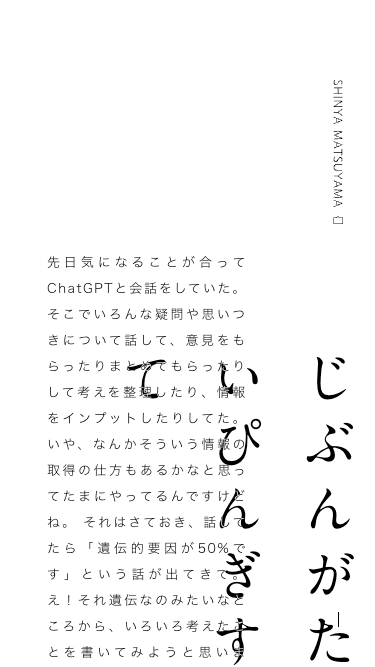 SHINYA MATSUYAMA
じぶんがた
いぴんぎす
て
先日気になることが合って
ChatGPTと会話をしていた。
そこでいろんな疑問や思いつ
きについて話して、意見をも
らったりまとめてもらったり
して考えを整理したり、情報
をインプットしたりしてた。
いや、なんかそういう情報の
取得の仕方もあるかなと思っ
てたまにやってるんですけど
ね。 それはさておき、話して
たら「遺伝的要因が50%で
す」という話が出てきて。
え！それ遺伝なのみたいなと
ころから、いろいろ考えたこ
とを書いてみようと思いま